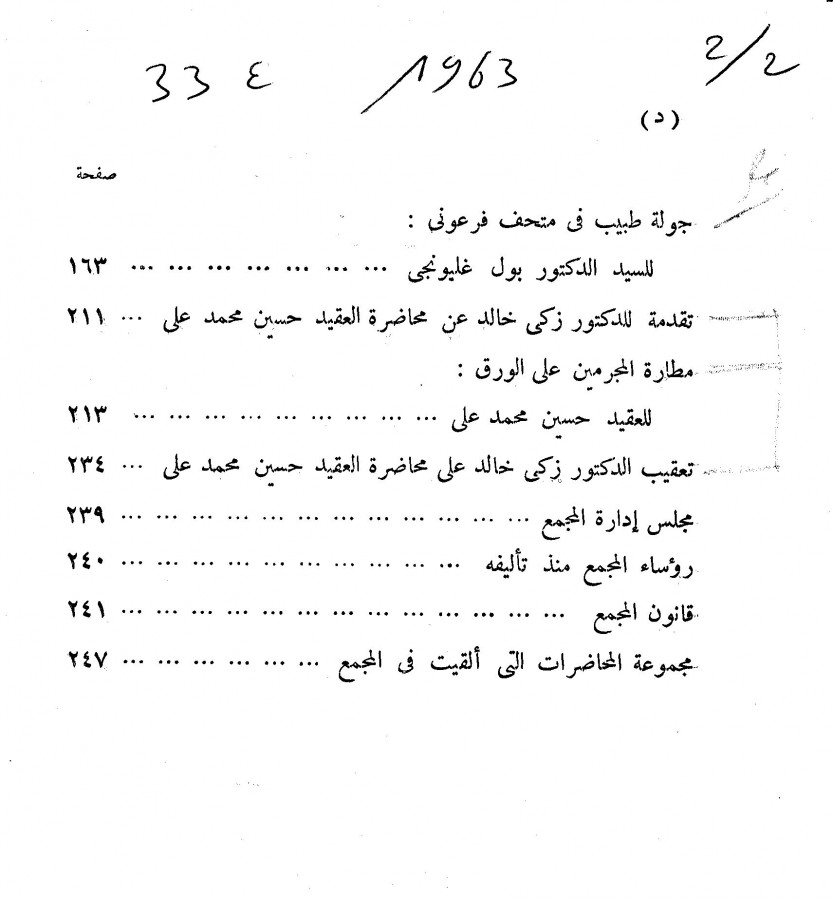 33 ع 1963 2/2
(د)
صفحة
جولة طبيب فى متحف فرعونى :
للسيد الدكتور بول غليونجى ... ... ... ... ... ... ... ١٦٣
تقدمة للدكتور زكى خالد عن محاضرة العقيد حسين محمد على ... ٢١١
مطارة المجرمين على الورق :
للعقيد حسين محمد على ... ... ... ... ... ... ... ... ... ٢١٣
تعقيب الدكتور زكى خالد على محاضرة العقيد حسين محمد على ... ٢٣٤
مجلس إدارة المجمع ... ... ... ... ... ... ... ... ... ... ... ... ٢٣٩
رؤساء المجمع منذ تأليفه ... ... ... ... ... ... ... ... ... ... ٢٤٠
قانون المجمع ... ... ... ... ... ... ... ... ... ... ... ... ... ٢٤١
مجموعة المحاضرات التى ألقيت فى المجمع ... ... ... ... ... ... ٢٤٧